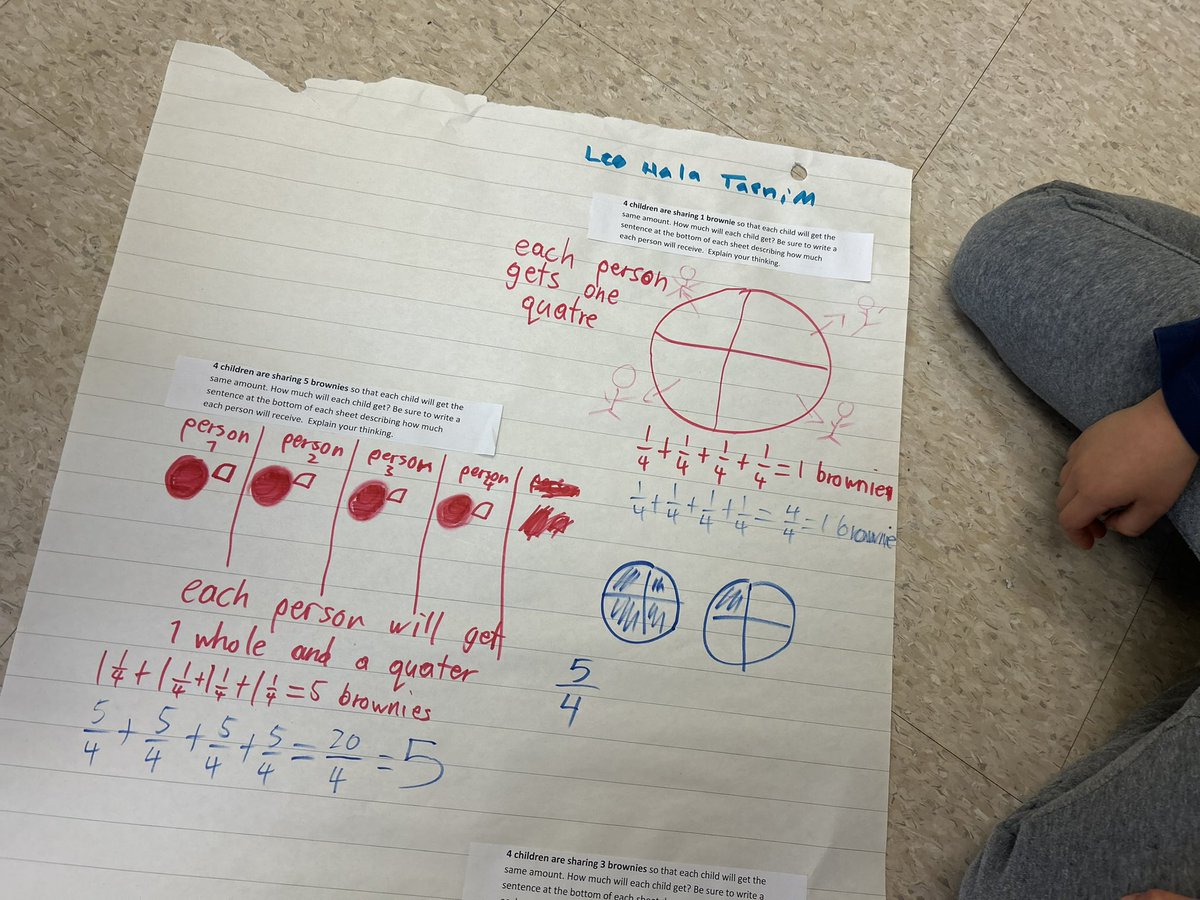 Leo Hala Tasnim
4 children are sharing 1 brownie so that each child will get the
same amount. How much will each child get? Be sure to write a
sentence at the bottom of each sheet describing how much
each person will receive. Explain your thinking.
each person
gets one
quatre
1/4 + 1/4 + 1/4 + 1/4 = 1 brownie
1/4 + 1/4 + 1/4 + 1/4 = 4/4 = 1 brownie
4 children are sharing 5 brownies so that each child will get the
same amount. How much will each child get? Be sure to write a
sentence at the bottom of each sheet describing how much
each person will receive. Explain your thinking.
person
1
person
2
person
3
person
4
each person will get
1 whole and a quater
1 1/4 + 1 1/4 + 1 1/4 + 1 1/4 = 5 brownies
5/4 + 5/4 + 5/4 + 5/4 = 20/4 = 5
5/4
4 children are sharing 3 brownies so that each child will get the
same amount. How much will each child get? Be sure to write a
sentence at the bottom of each